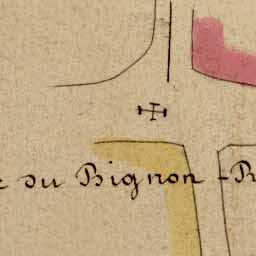 du Bignon -